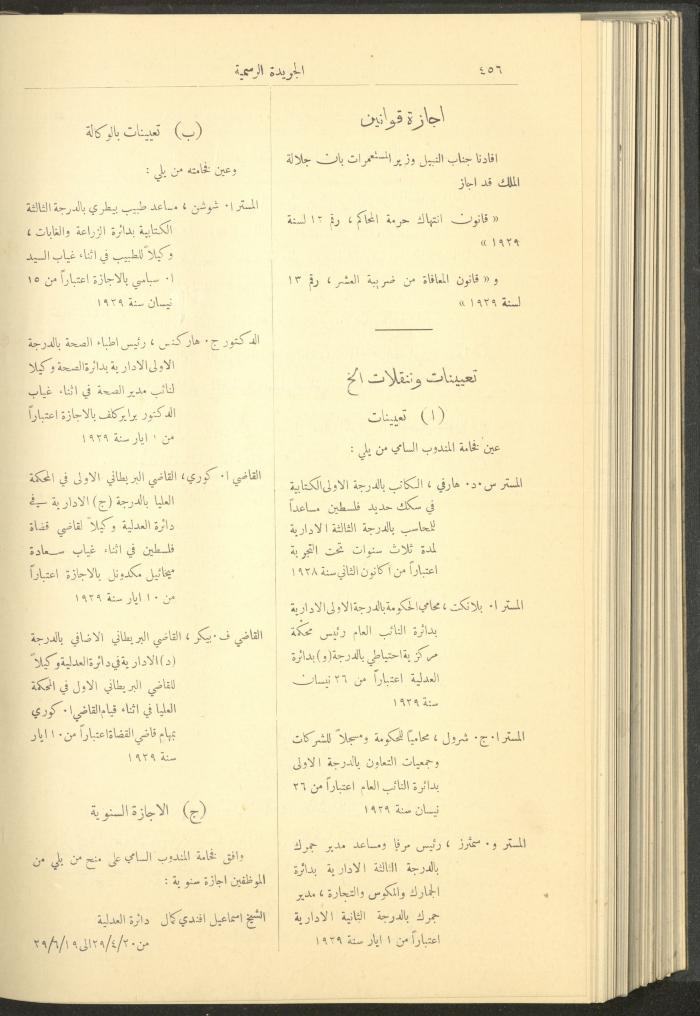 ٤٥٦
الجريدة الرسمية
اجازة قوانين
افادنا جناب النبيل وزير المستعمرات بان جلالة
الملك قد اجاز
« قانون انتهاك حرمة المحاكم ، رقم ١٢ لسنة
١٩٢٩ »
و « قانون المعافاة من ضريبة العشر ، رقم ١٣
لسنة ١٩٢٩ »
تعيينات وتنقلات الخ
(ا) تعيينات
عين فخامة المندوب السامي من يلي :
المستر س٠ د٠ هارفي ، الكاتب بالدرجة الاولى الكتابية
في سكك حديد فلسطين مساعداً
للمحاسب بالدرجة الثالثة الادارية
لمدة ثلاث سنوات تحت التجربة
اعتباراً من ١ كانون الثاني سنة ١٩٢٨
المستر ا٠ بلانكت ، محامي الحكومة بالدرجة الاولى الادارية
بدائرة النائب العام رئيس محكمة
مركزية احتياطي بالدرجة (و) بدائرة
العدلية اعتباراً من ٢٦ نيسان
سنة ١٩٢٩
المستر ا٠ ج٠ شرول ، محامياً للحكومة ومسجلاً للشركات
وجمعيات التعاون بالدرجة الاولى
بدائرة النائب العام اعتباراً من ٢٦
نيسان سنة ١٩٢٩
المستر و٠ سمئرز ، رئيس مرفا ومساعد مدير جمرك
بالدرجة الثالثة الادارية بدائرة
الجمارك والمكوس والتجارة ، مدير
جمرك بالدرجة الثانية الادارية
اعتباراً من ١ ايار سنة ١٩٢٩
(ب) تعيينات بالوكالة
وعين فخامته من يلي :
المستر ا٠ شوشن ، مساعد طبيب بيطري بالدرجة الثالثة
الكتابية بدائرة الزراعة والغابات ،
وكيلاً للطبيب في اثناء غياب السيد
ا٠ سباسي بالاجازة اعتباراً من ١٥
نيسان سنة ١٩٢٩
الدكتور ج٠ هاركنس ، رئيس اطباء الصحة بالدرجة
الاولى الادارية بدائرة الصحة وكيلا
لنائب مدير الصحة في اثناء غياب
الدكتور برايركلف بالاجازة اعتباراً
من ١ ايار سنة ١٩٢٩
القاضي ا٠ كوري ، القاضي البريطاني الاولى في المحكمة
العليا بالدرجة (ج) الادارية في
دائرة العدلية وكيلاً لقاضي قضاة
فلسطين في اثناء غياب سعادة
ميخائيل مكدونل بالاجازة اعتباراً
من ١٠ ايار سنة ١٩٢٩
القاضي ف٠ بيكر ، القاضي البريطاني الاضافي بالدرجة
(د) الادارية في دائرة العدلية وكيلاً
للقاضي البريطاني الاول في المحكمة
العليا في اثناء قيام القاضي ا٠ كوري
بمهام قاضي القضاة اعتباراً من ١٠ ايار
سنة ١٩٢٩
(ج) الاجازة السنوية
وافق فخامة المندوب السامي على منح من يلي من
الموظفين اجازة سنوية :
الشيخ اسماعيل افندي كمال دائرة العدلية
من ٢٩/٤/٢٠ الى ٢٩/٦/١٩